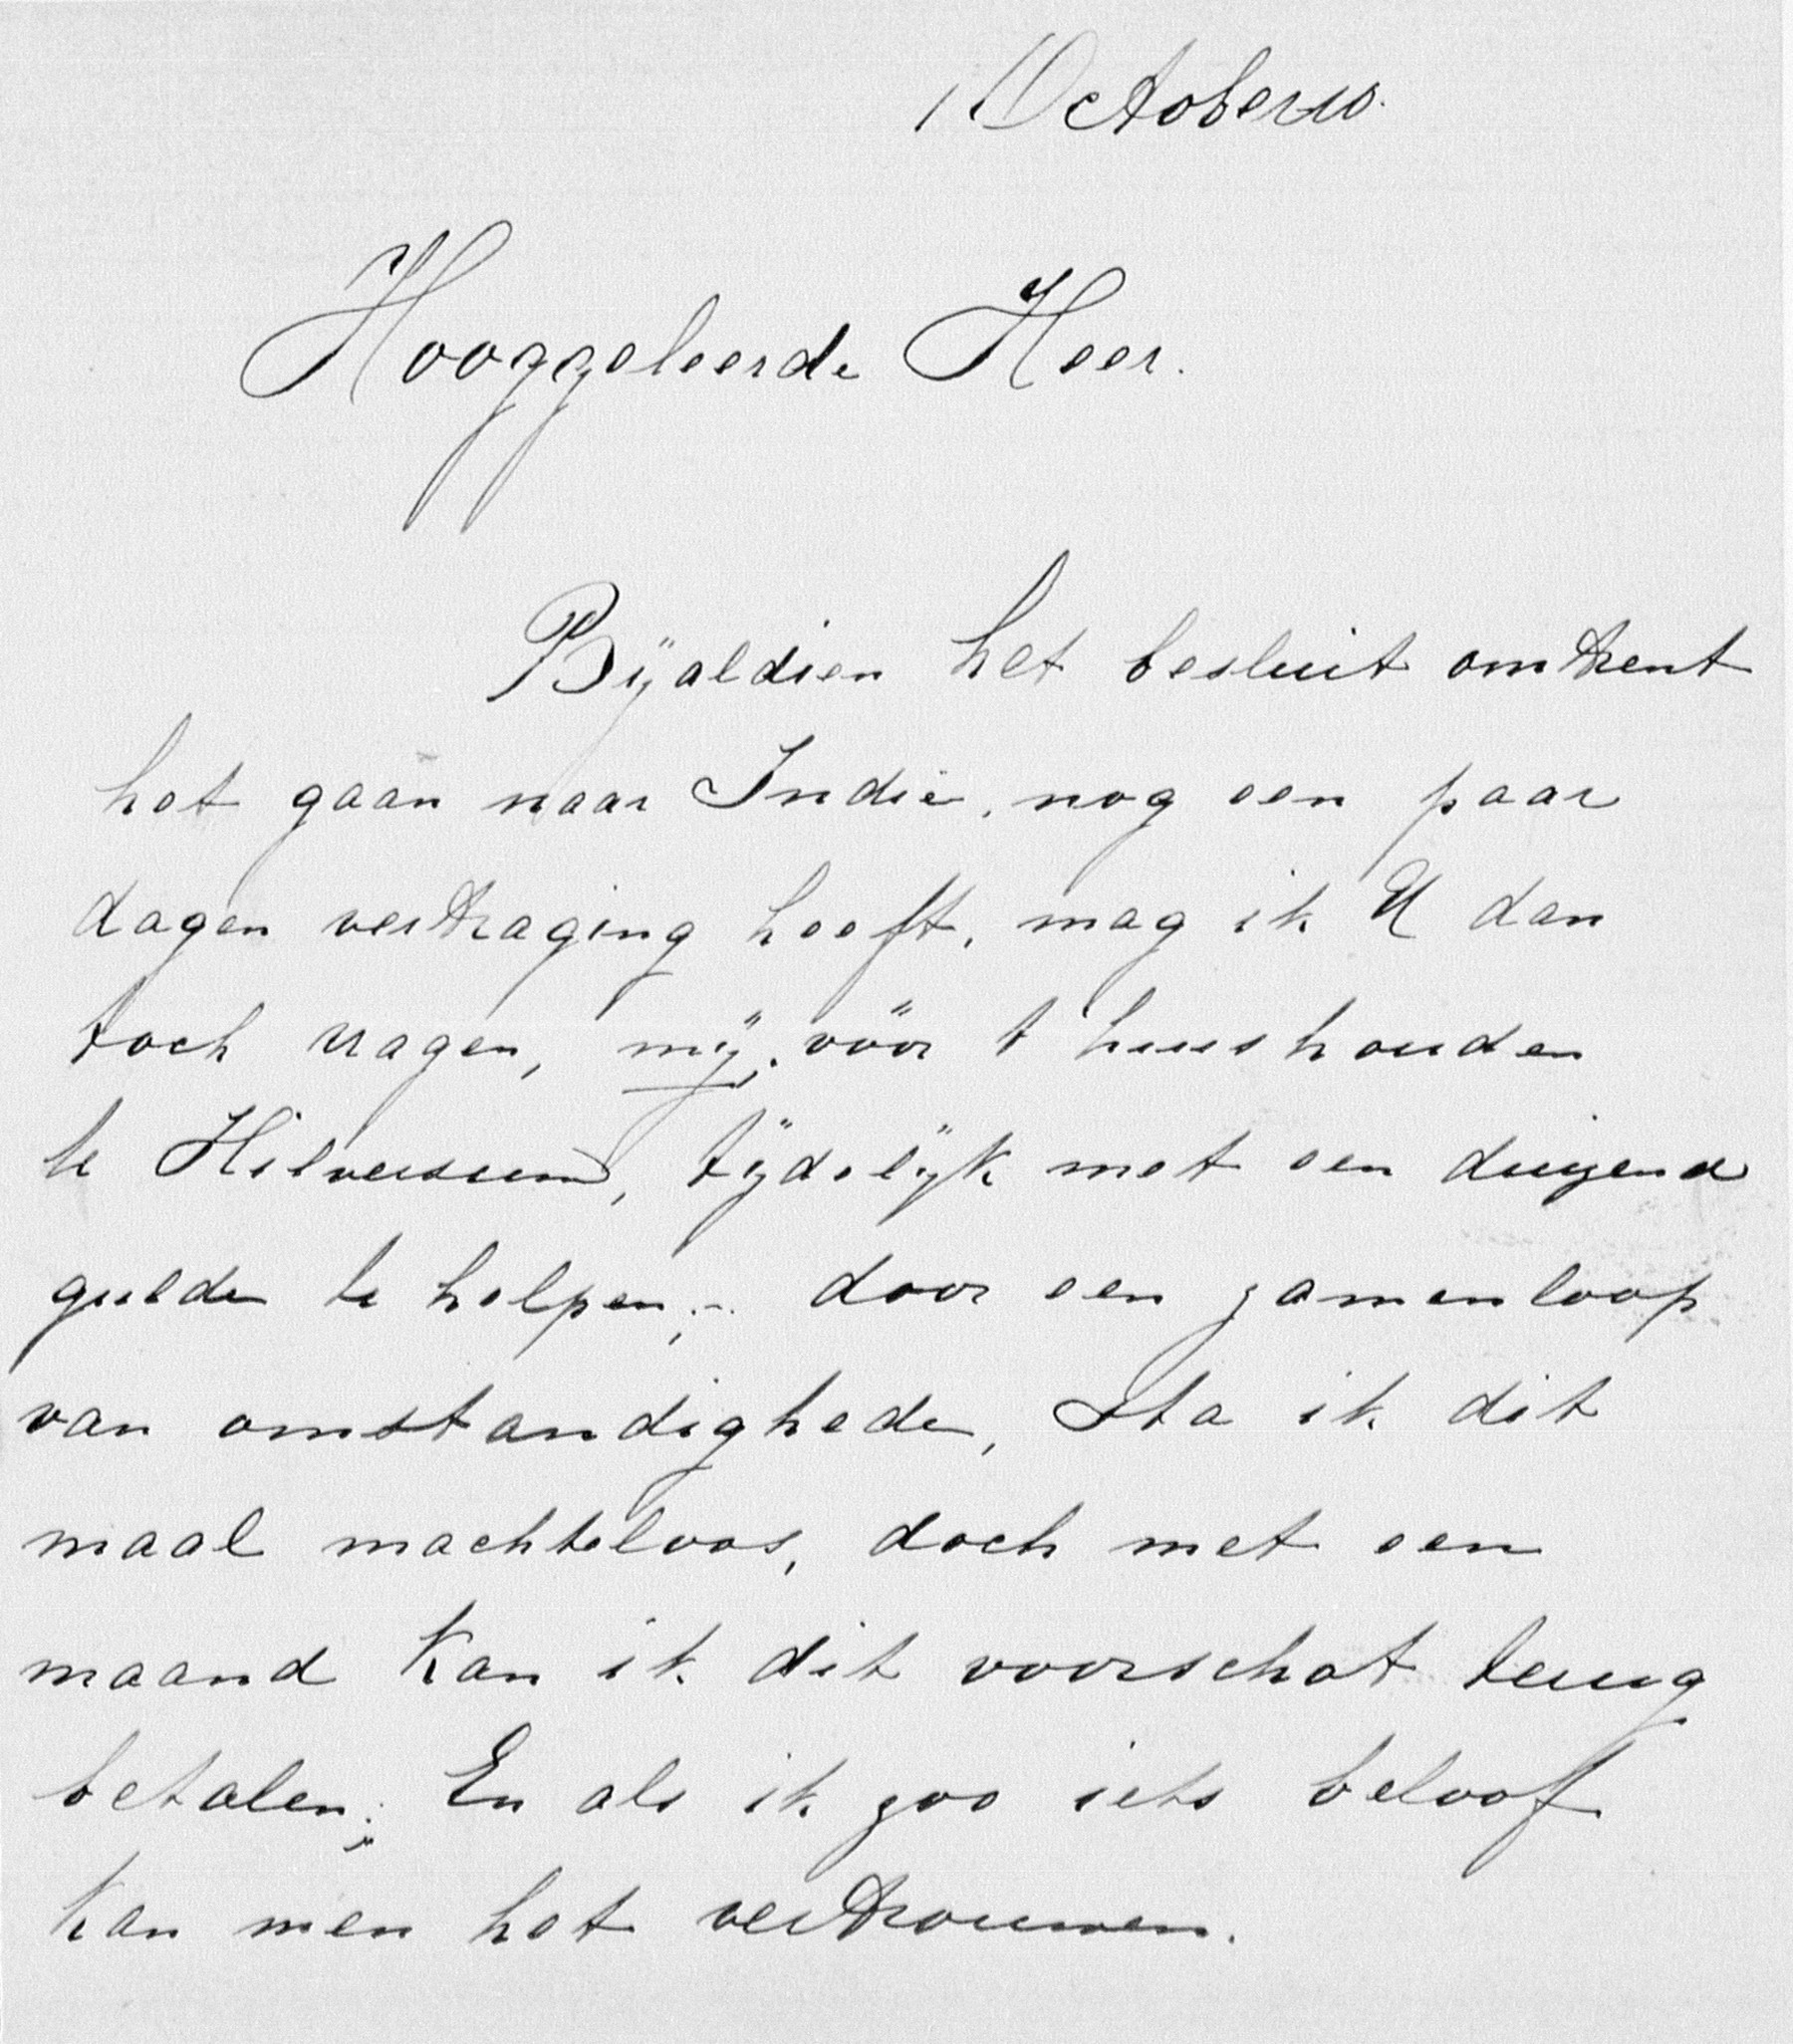 1 October 10.
Hooggeleerde Heer.
Bijaldien het besluit omtrent
het gaan naar Indië, nog een paar
dagen vertraging heeft, mag ik U dan
toch vragen, mij, vóór t huishouden
te Hilversum, tijdelijk met een duizend
gulden te helpen; - door een zamenloop
van omstandigheden, sta ik dit
maal machteloos, doch met een
maand kan ik dit voorschot terug
betalen; En als ik zoo iets beloof
kan men het vertrouwen.